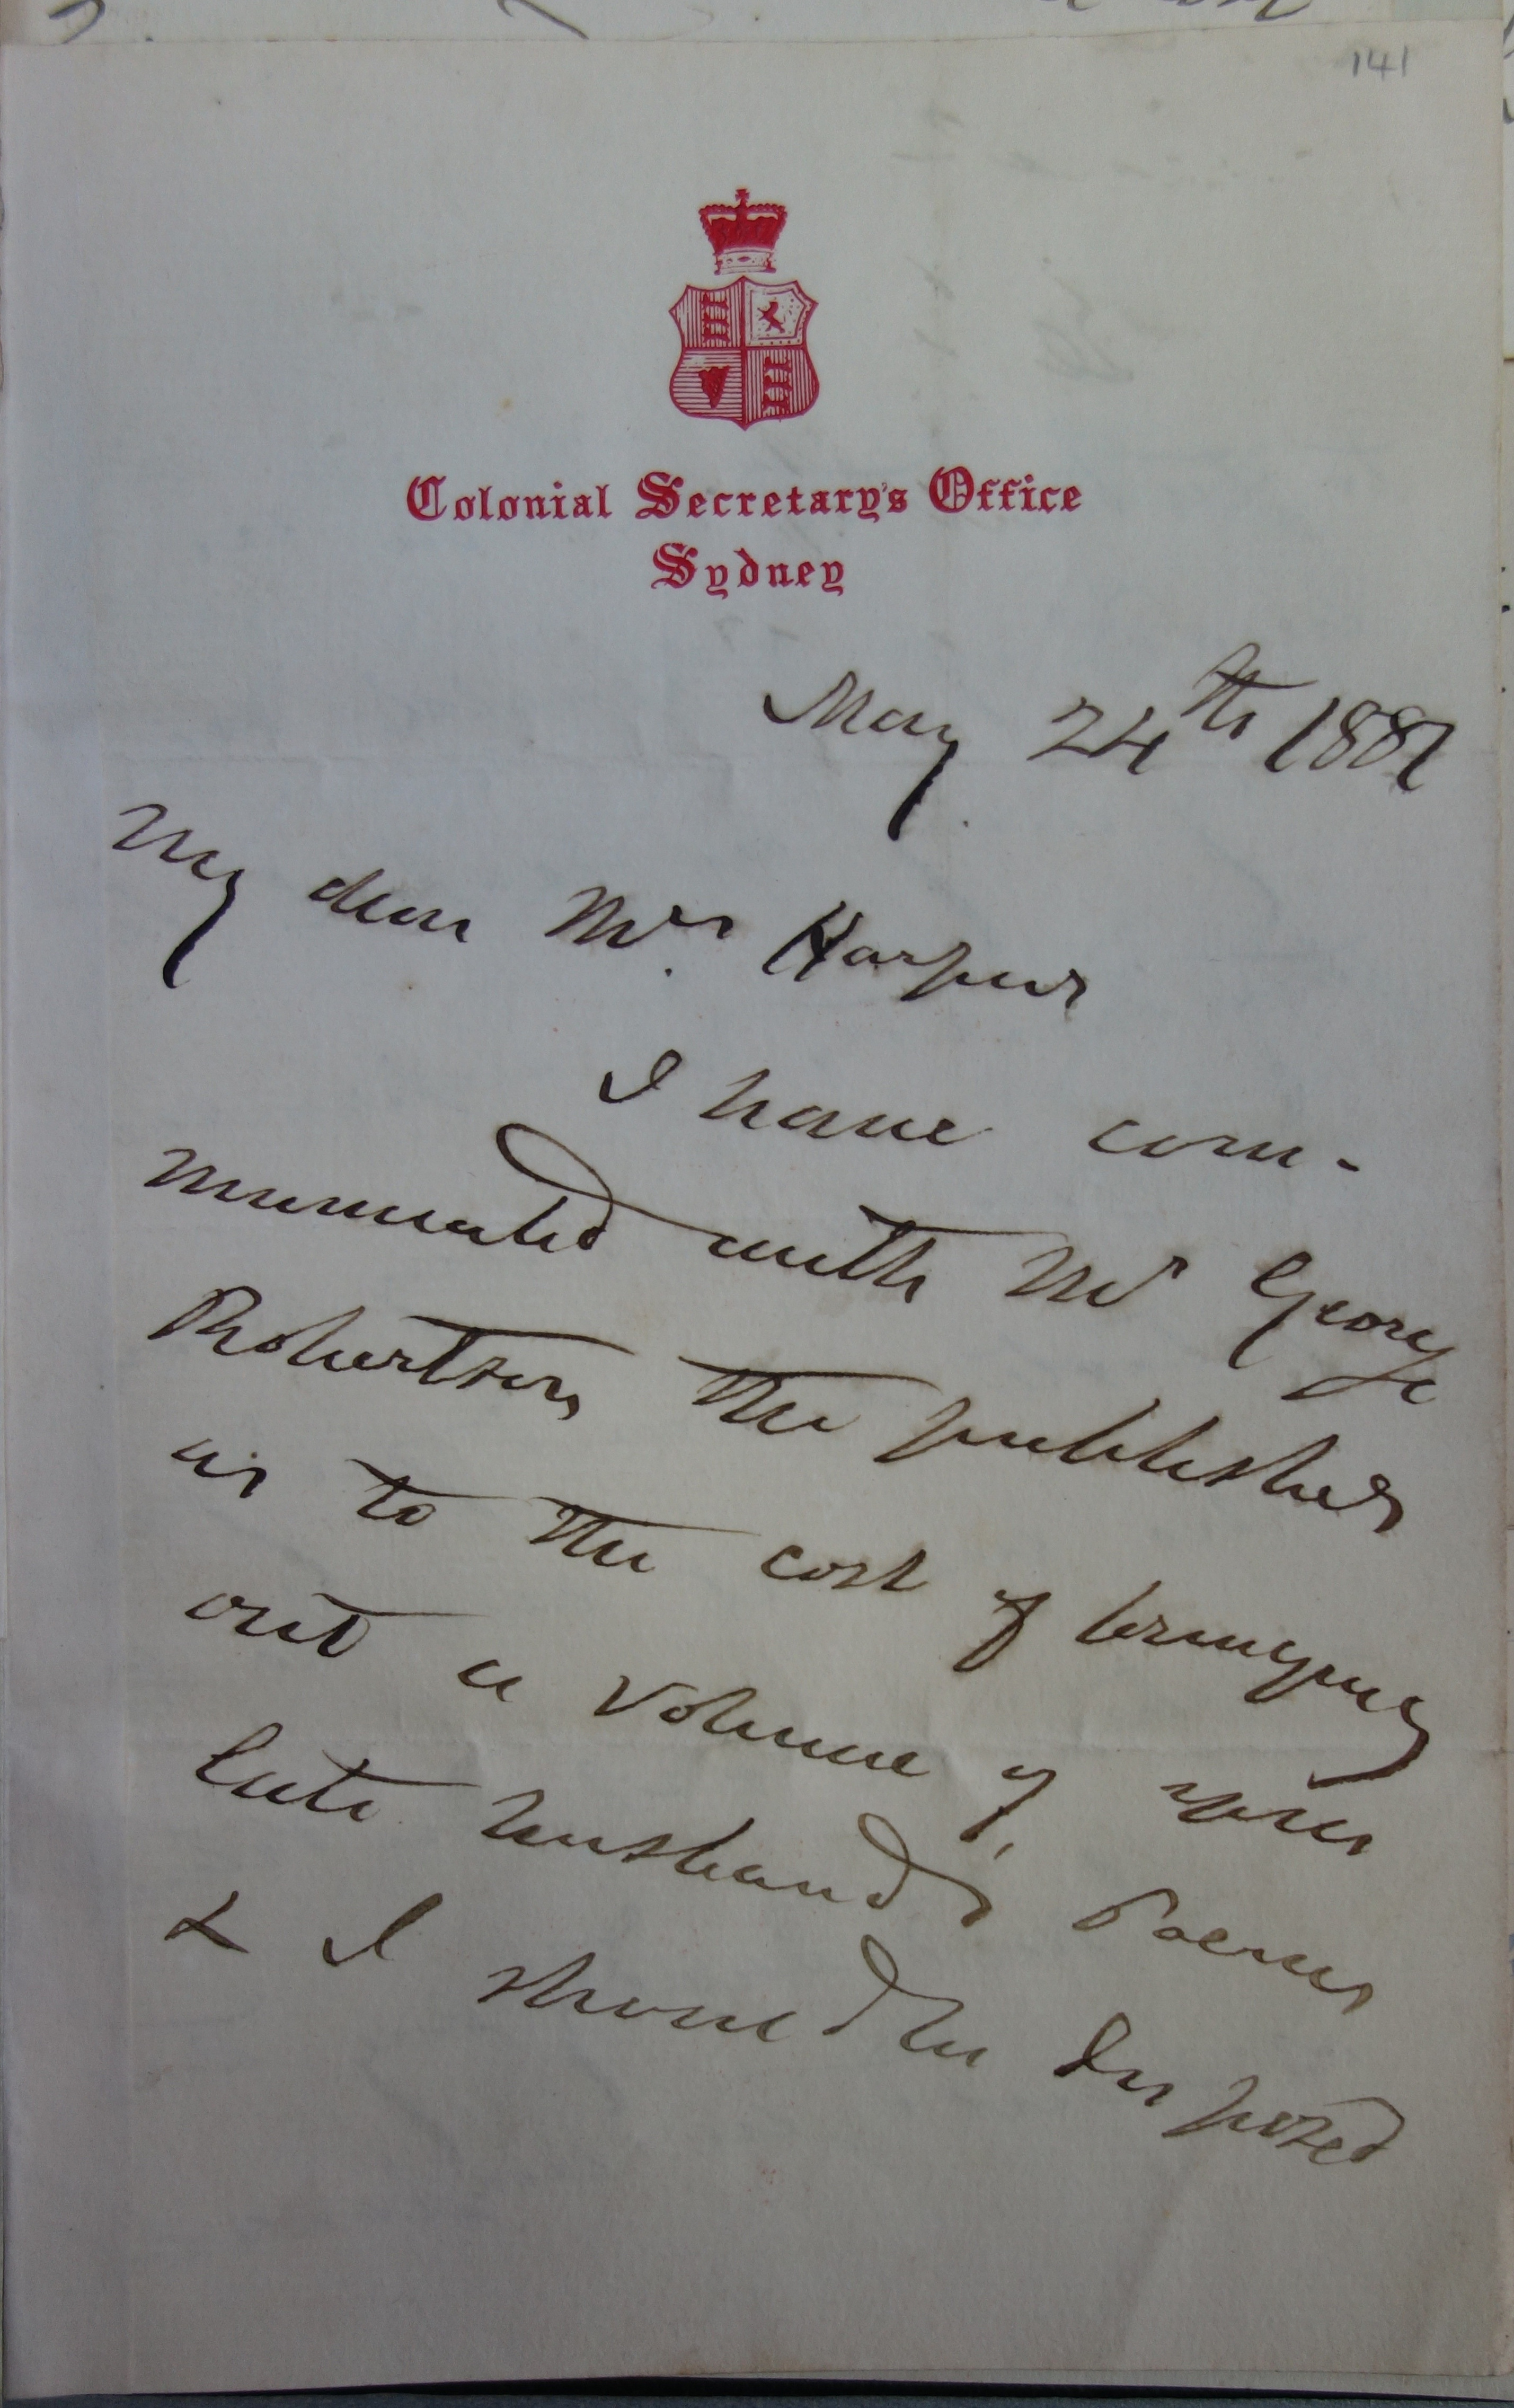 141
Colonial Secretary's Office
Sydney
May 24th 1881
My dear Mrs Harpur
I have com-
municated with Mr George
Robertson the publisher
as to the cost of bringing
out a volume of your
late husband's Poems
& I should be disposed